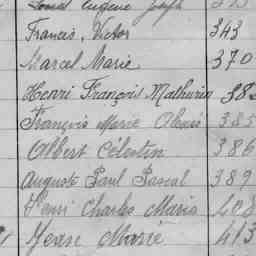 Eugène Joseph 373
Francis, Victor 343
Marcel Marie 370
Henri François Mathurin 38
François Marie Alexis 385
Albert Célestin 386
Auguste Paul Pascal 389
Henri Charles Marie 408
Marie 413